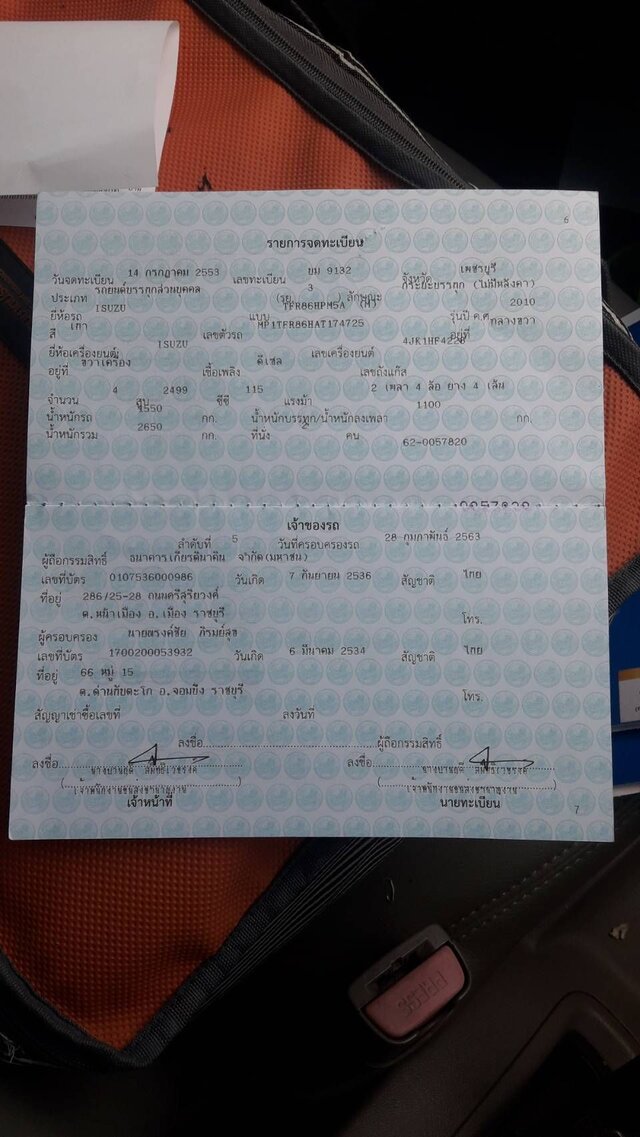 6
รายการจดทะเบียน
วันจดทะเบียน 14 กรกฎาคม 2553 เลขทะเบียน ยม 9132 จังหวัด เพชรบุรี
ประเภท รถยนต์บรรทุกส่วนบุคคล (รย. 3 ) ลักษณะ กระบะบรรทุก (ไม่มีหลังคา)
ยี่ห้อรถ ISUZU แบบ TFR86HPM5A (H) รุ่นปี ค.ศ. 2010
สี เทา เลขตัวรถ MP1TFR86HAT174725 อยู่ที่ กลางขวา
ยี่ห้อเครื่องยนต์ ISUZU เลขเครื่องยนต์
อยู่ที่ ขวาเครื่อง เชื้อเพลิง ดีเซล เลขถังแก๊ส
จำนวน 4 สูบ 2499 ซีซี 115 แรงม้า 2 เพลา 4 ล้อ ยาง 4 เส้น
น้ำหนักรถ 1550 กก. น้ำหนักบรรทุก/น้ำหนักลงเพลา 1100 กก.
น้ำหนักรวม 2650 กก. ที่นั่ง 2 คน 62-0057820
เจ้าของรถ
ลำดับที่ 5 วันที่ครอบครองรถ 28 กุมภาพันธ์ 2563
ผู้ถือกรรมสิทธิ์ ธนาคารเกียรตินาคิน จำกัด(มหาชน)
เลขที่บัตร 0107536000986 วันเกิด 7 กันยายน 2536 สัญชาติ ไทย
ที่อยู่ 286/25-28 ถนนศรีสุริยวงศ์
ต.หน้าเมือง อ.เมือง ราชบุรี โทร.
ผู้ครอบครอง นายณรงค์ชัย ภิรมย์สุข
เลขที่บัตร 1700200053932 วันเกิด 6 มีนาคม 2534 สัญชาติ ไทย
ที่อยู่ 66 หมู่ 15
ต.ด่านทับตะโก อ.จอมบึง ราชบุรี โทร.
สัญญาเช่าซื้อเลขที่ ลงวันที่
ลงชื่อ ผู้ถือกรรมสิทธิ์
ลงชื่อ ลงชื่อ
เจ้าหน้าที่ นายทะเบียน
7
PRESS